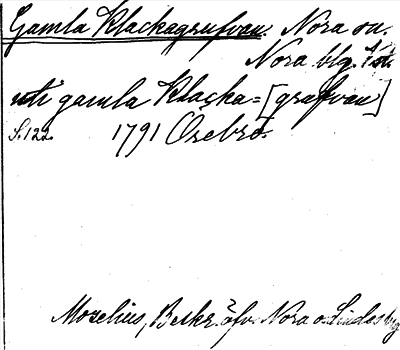 Gamla Klackagrufvan. Nora sn.
Nora blg. 
uti gamla Klacka=[grufvan]
S. 122. 1791 Örebro.
Moselius, Beskr. öfv. Nora o. Lindesbg